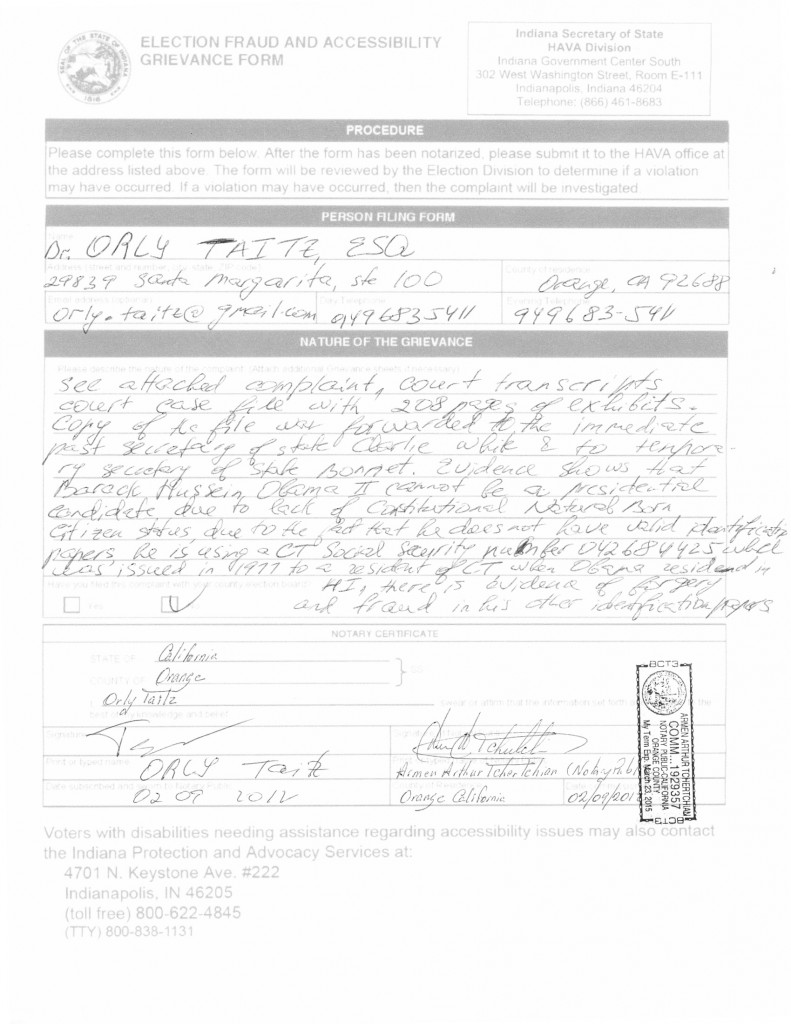 ELECTION FRAUD AND ACCESSIBILITY
GRIEVANCE FORM
Indiana Secretary of State
HAVA Division
Indiana Government Center South
302 West Washington Street, Room E-111
Indianapolis, Indiana 46204
Telephone: (866) 461-8683
PROCEDURE
Please complete this form below. After the form has been notarized, please submit it to the HAVA office at
the address listed above. The form will be reviewed by the Election Division to determine if a violation
may have occurred. If a violation may have occurred, then the complaint will be investigated
PERSON FILING FORM
Dr. ORLY TAITZ, ESQ
29839 Santa Margarita, ste 100 Orange, CA 92688
orly.taitz@gmail.com 9496835411 949683-5411
NATURE OF THE GRIEVANCE
Please describe the nature of the complaint. (Attach additional Grievance sheets if necessary)
see attached complaint, court transcripts
court case file with 208 pages of exhibits.
Copy of the file was forwarded to the immediate
past secretary of state Charlie White & to tempora-
ry secretary of state Bonnet. Evidence shows that
Barack Hussein Obama II cannot be a presidential
candidate, due to lack of Constitutional Natural Born
Citizen status, due to the fact that he does not have valid identification
papers, he is using a CT Social Security number 042684425 which
was issued in 1977 to a resident of CT when Obama resided in
HI, there is evidence of forgery
and fraud in his other identification papers
Have you filed this complaint with your county election board?
Yes
NOTARY CERTIFICATE
STATE OF California
COUNTY OF Orange
Orly Taitz swear or affirm that the information set forth the
best of my knowledge and belief.
Signature
Print or typed name
ORLY Taitz Armen Arthur Tchertchian (Notary Pub
Date subscribed and sworn to Notary Public
02 09 2012 Orange California 02/09/2012
BCT3
ARMEN ARTHUR TCHERTCHIAN
COMM. 1929357
NOTARY PUBLIC-CALIFORNIA
ORANGE COUNTY
My Term Exp. March 23, 2015
BCT3
Voters with disabilities needing assistance regarding accessibility issues may also contact
the Indiana Protection and Advocacy Services at:
4701 N. Keystone Ave. #222
Indianapolis, IN 46205
(toll free) 800-622-4845
(TTY) 800-838-1131